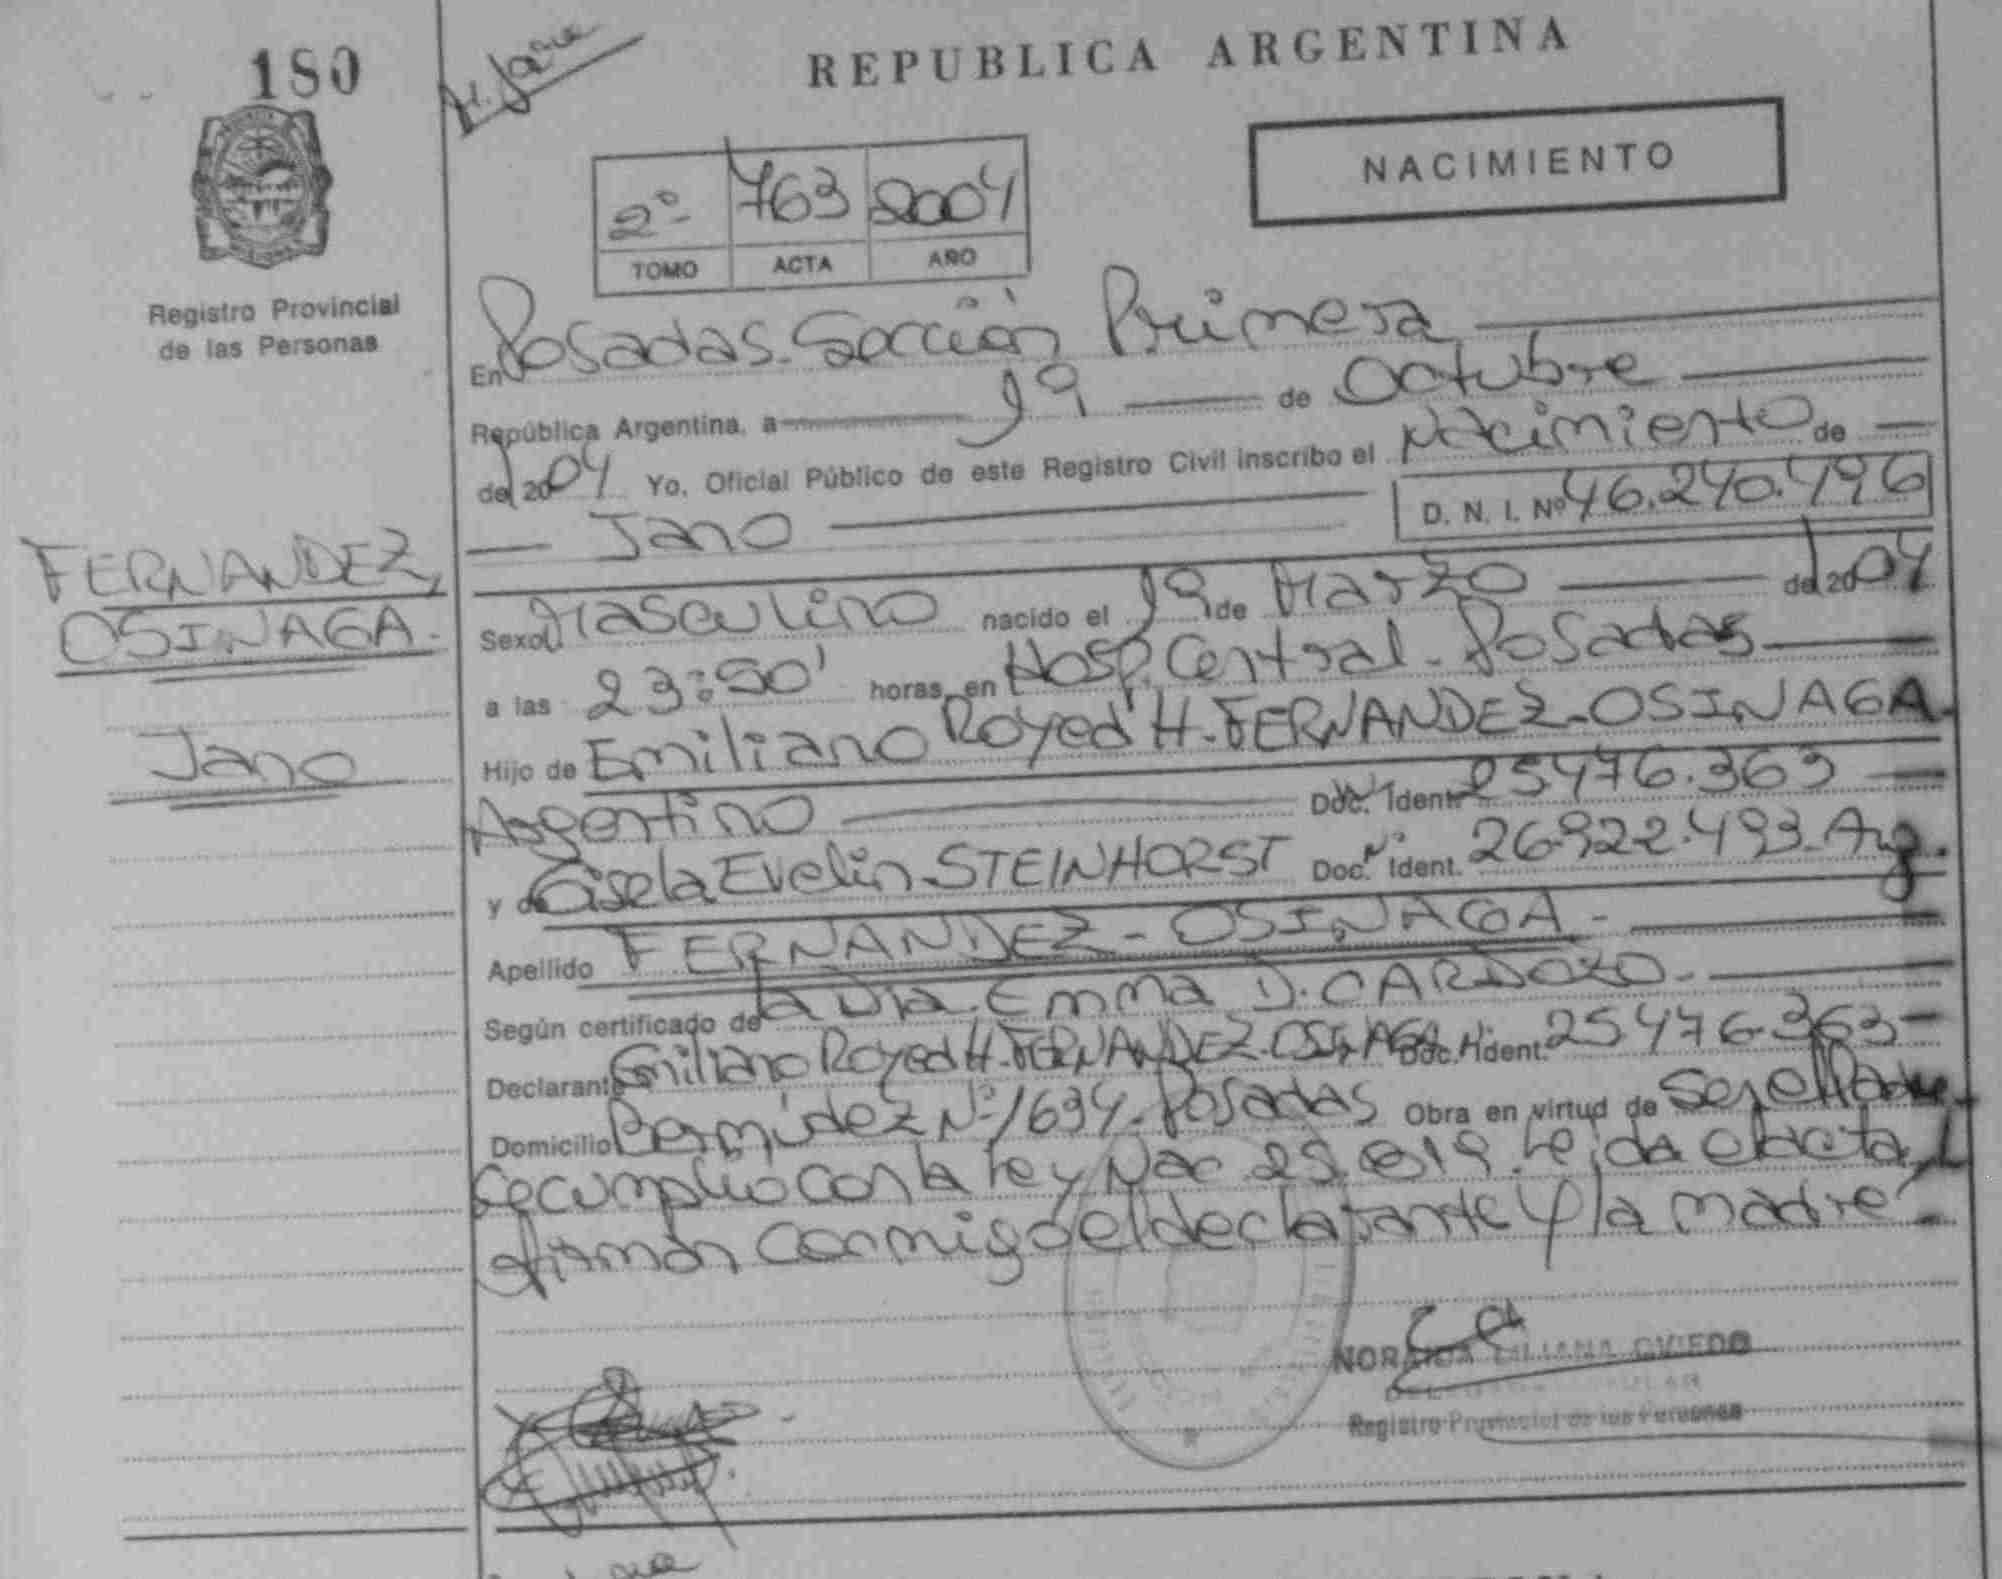 180
REPUBLICA ARGENTINA
NACIMIENTO
2º 763 2004
TOMO ACTA AÑO
Registro Provincial
de las Personas
En Posadas - Sección Primera
República Argentina, a 19 de Octubre
del 2004 Yo, Oficial Público de este Registro Civil inscribo el Nacimiento de
Jano D. N. I. Nº 46.240.496
FERNANDEZ,
OSINAGA.
Jano
Sexo Masculino nacido el 19 de Marzo del 2004
a las 23:50' horas, en Hosp. Central - Posadas
Hijo de Emiliano Royed H. FERNANDEZ-OSINAGA.
Argentino Doc. Nº Ident. 25476.363
y de Gisela Evelin STEINHORST Doc. Nº Ident. 26.922.493 - Arg.
Apellido FERNANDEZ - OSINAGA -
Según certificado de la Dra. Emma D. CARDOZO -
Declarante Emiliano Royed H. FERNANDEZ-OSINAGA Doc. Nº Ident. 25476.363 -
Domicilio Bermúdez Nº 1634 - Posadas Obra en virtud de Ser el Padre
Se cumplió con la Ley Nac 25.819. Leída el acta, L
firman conmigo el declarante y la madre -
NORAIDA LILIANA OVIEDO
Registro Provincial de las Personas